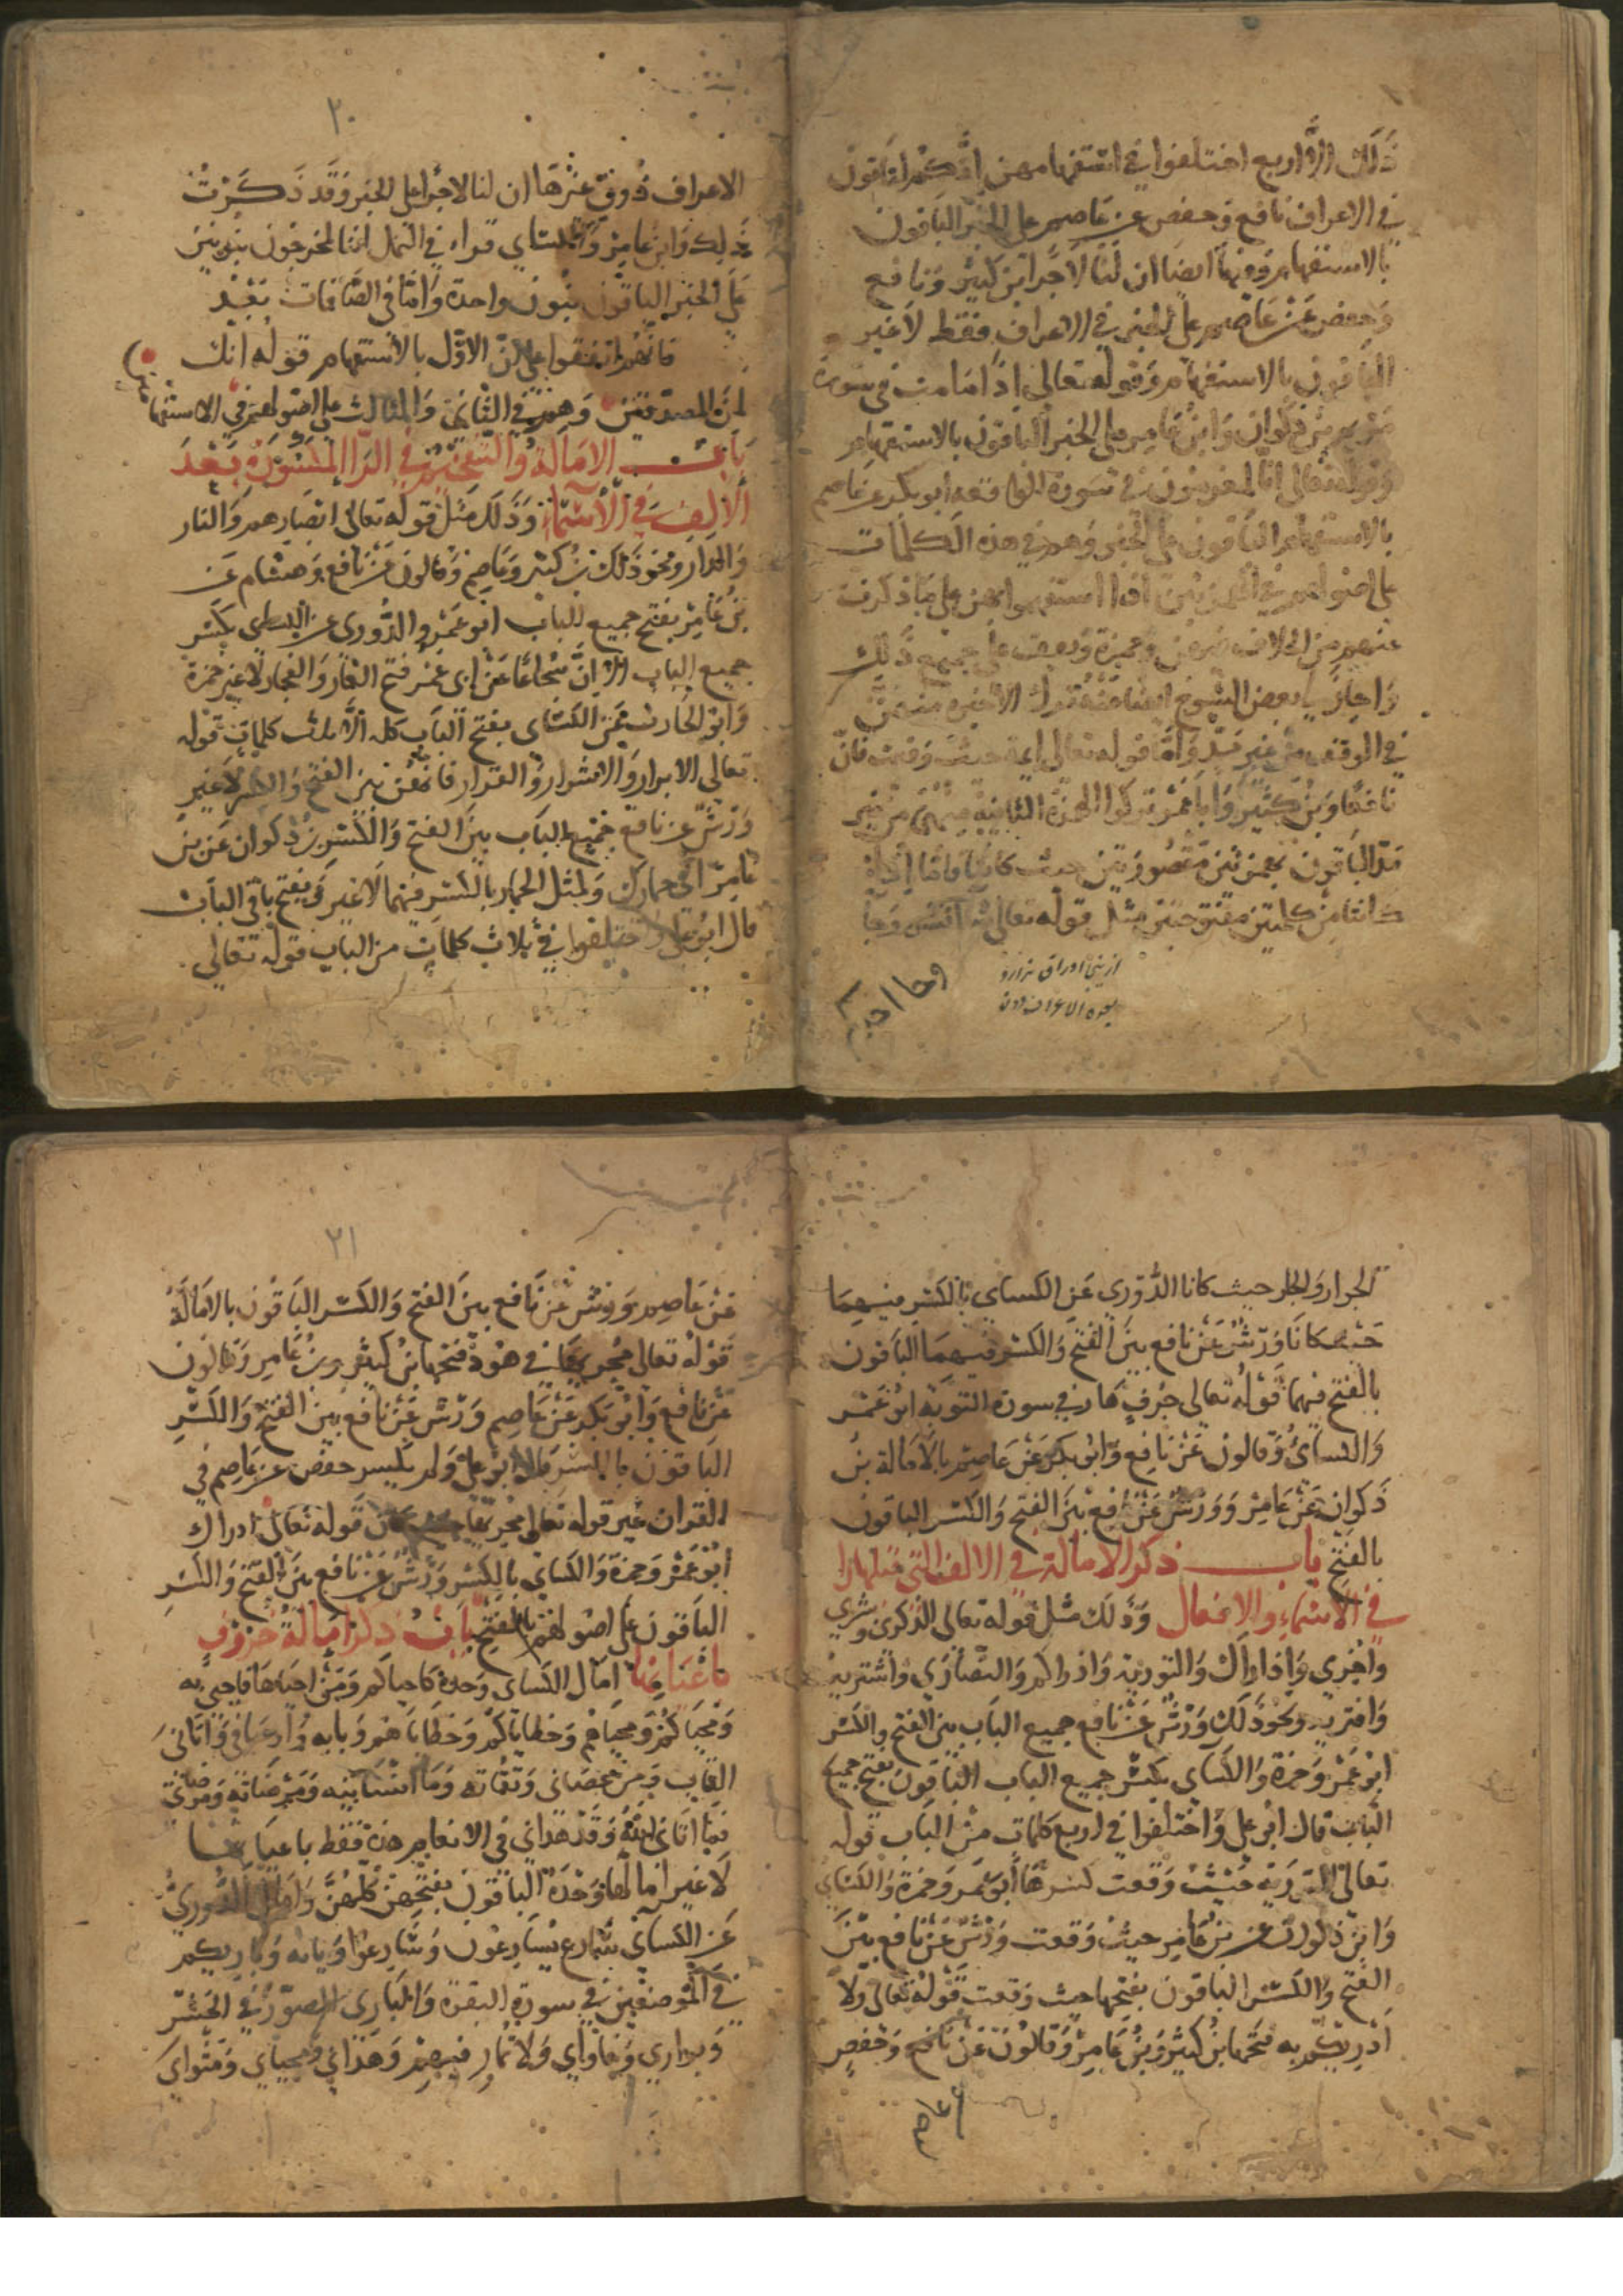 ذلك الا اربع اختلفوا في استفهامهن انكم لتاتون
في الاعراف نافع وحفص عن عاصم على الخبر الباقون
بالاستفهام وفيها ايضا ان لنا لاجرا ابن كثير ونافع
وحفص عن عاصم على الخبر في الاعراف فقط لا غير
الباقون بالاستفهام وقوله تعالى اذا ما مت في سورة
مريم بن ذكوان وابن عامر على الخبر الباقون بالاستفهام
وقوله تعالى انا لمغرمون في سورة الواقعة ابو بكر عن عاصم
بالاستفهام الباقون على الخبر وهم في هذه الكلمات
على اصولهم في الهمزتين اذا استفهموا بهن على ما ذكرت
عنهم من الخلاف وحمزة ويقف على جميع ذلك
واختار بعض الشيوخ ترك الاخيرة منهن
في الوقف من غير مد واما قوله تعالى ايمة حيث وقعت فان
نافعا وبن كثير وابا عمرو تركوا الهمزة الثانية منهن من غير
مد الباقون بهمزتين مقصورتين حيث كانا فاما اذا
كانتا من كلمتين مفتوحتين مثل قوله تعالى انفسى وجا
وجا احد
از بين اوراق
سوره الاعراف
٢٠
الاعراف ذوق عثرها ان لنا لاجرا على الخبر وقد ذكرت
ذلك وابن عامر والكساي قراء في النمل اننا لمخرجون بنونين
على الخبر الباقون بنون واحدة واما في الصافات بعد
فانهم اتفقوا على ان الاول بالاستفهام قوله انك
لمن المصدقين وهم في الثاني والثالث على اصولهم في الاستفهام
باب الامالة والتفخيم في الرا المكسورة بعد
الالف في الاسماء وذلك مثل قوله تعالى ابصارهم والنار
والدار ونحو ذلك بن كثير وعاصم وقالون عن نافع وهشام عن
بن عامر بفتح جميع الباب ابو عمرو والدوري عن الكساي بكسر
جميع الباب الا ان شجاعا عن ابي عمر فتح الغار والفجار لا غير حمزة
وابو الحارث عن الكساي بفتح الباب كله الا ثلث كلمات قوله
تعالى الابرار والاشرار والقرار فانهن بين الفتح والكسر لا غير
ورش عن نافع جميع الباب بين الفتح والكسر بن ذكوان عن بن
عامر الى حمارك وكمثل الحمار بالكسر فيهما لا غير ويفتح باقي الباب
قال ابو علي واختلفوا في ثلاث كلمات من الباب قوله تعالى
الجوار والجار حيث كانا الدوري عن الكساي بالكسر فيهما
حيث كانا ورش عن نافع بين الفتح والكسر فيهما الباقون
بالفتح فيهما قوله تعالى جرف هار في سورة التوبة ابو عمر
والكساي وقالون عن نافع وابو بكر عن عاصم بالامالة بن
ذكوان عن عامر وورش عن نافع بين الفتح والكسر الباقون
بالفتح باب ذكر الامالة في الالف التي قبلها را
في الاسماء والافعال وذلك مثل قوله تعالى الذكرى وبشري
واخري واذا راك والتورية واذراكم والنصاري واشتريه
وافتريه ونحو ذلك ورش عن نافع جميع الباب بين الفتح والكسر
ابو عمر وحمزة والكساي بكسر جميع الباب الباقون بفتح جميع
الباب قال ابو علي واختلفوا في اربع كلمات من الباب قوله
تعالى التورية حيث وقعت كسرها ابو عمر وحمزة والكساي
وابن ذكوان عن بن عامر حيث وقعت ورش عن نافع بين
الفتح والكسر الباقون بفتحها حيث وقعت قوله تعالى ولا
ادريكم به فتحها بن كثير وبن عامر وقالون عن نافع وحفص
عن عاصم
٢١
عن عاصم وورش عن نافع بين الفتح والكسر الباقون بالامالة
قوله تعالى مجريها في هود فتحها بن كثير وبن عامر وقالون
عن نافع وابو بكر عن عاصم ورش عن نافع بين الفتح والكسر
الباقون بالكسر قال ابو علي ولم يكسر حفص عن عاصم في
القران غير قوله تعالى مجريها قوله تعالى ادراك
ابو عمر وحمزة والكساي بالكسر ورش عن نافع بين الفتح والكسر
الباقون على اصولهم بالفتح باب ذكر امالة حروف
باعيانها امال الكساي وحده فاحياكم ومن احياها فاحيى به
ومحياكم ومحياهم وخطاياكم وخطاياهم وبابه واوصاني واتاني
الكتاب ومن عصاني وتقاته وما انسانيه ومرضاته ومرضاتي
فما اتاني الله وقد هداني في الانعام هذه فقط باعيانها
لا غير امالها وحده الباقون بفتحهن كلهن وامال الدوري
عن الكساي نسارع يسارعون وسارعوا وبابه وباريكم
في الموضعين في سورة البقرة والباري المصور في الحشر
وبواري وفاواري ولا تمار فيهم وهداي ومحياي ومثواي